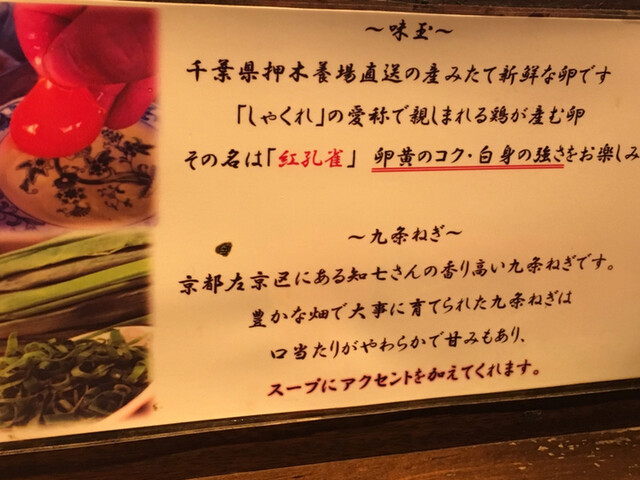 ～味玉～
千葉県押木養場直送の産みたて新鮮な卵です
「しゃくれ」の愛称で親しまれる鶏が産む卵
その名は「紅孔雀」 卵黄のコク・白身の強さをお楽しみ
～九条ねぎ～
京都左京区にある知七さんの香り高い九条ねぎです。
豊かな畑で大事に育てられた九条ねぎは
口当たりがやわらかで甘みもあり、
スープにアクセントを加えてくれます。